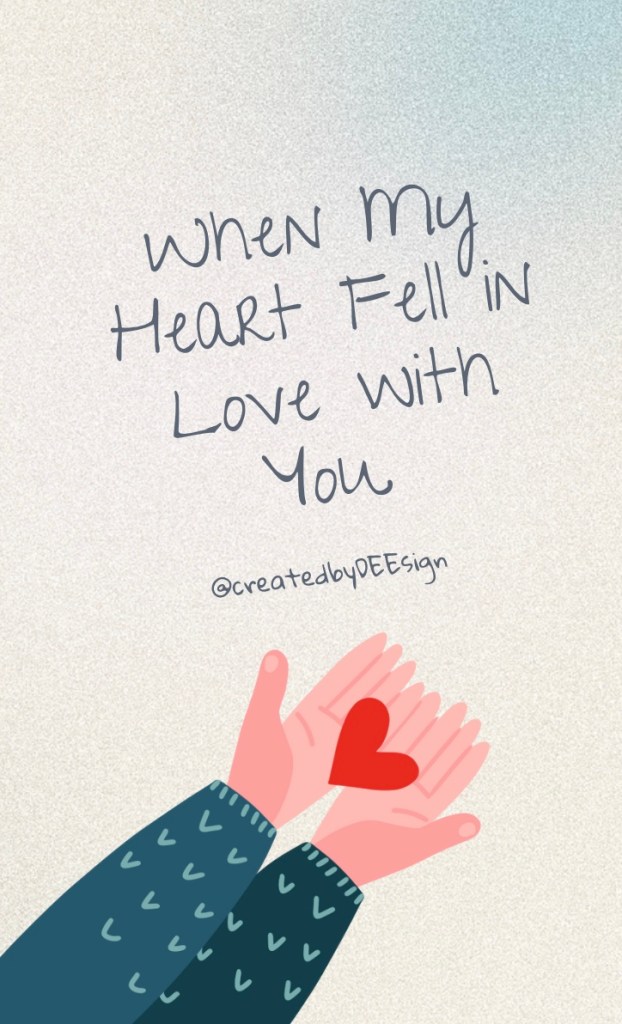 When My
Heart Fell in
Love with
You
@createdbyDEEsign